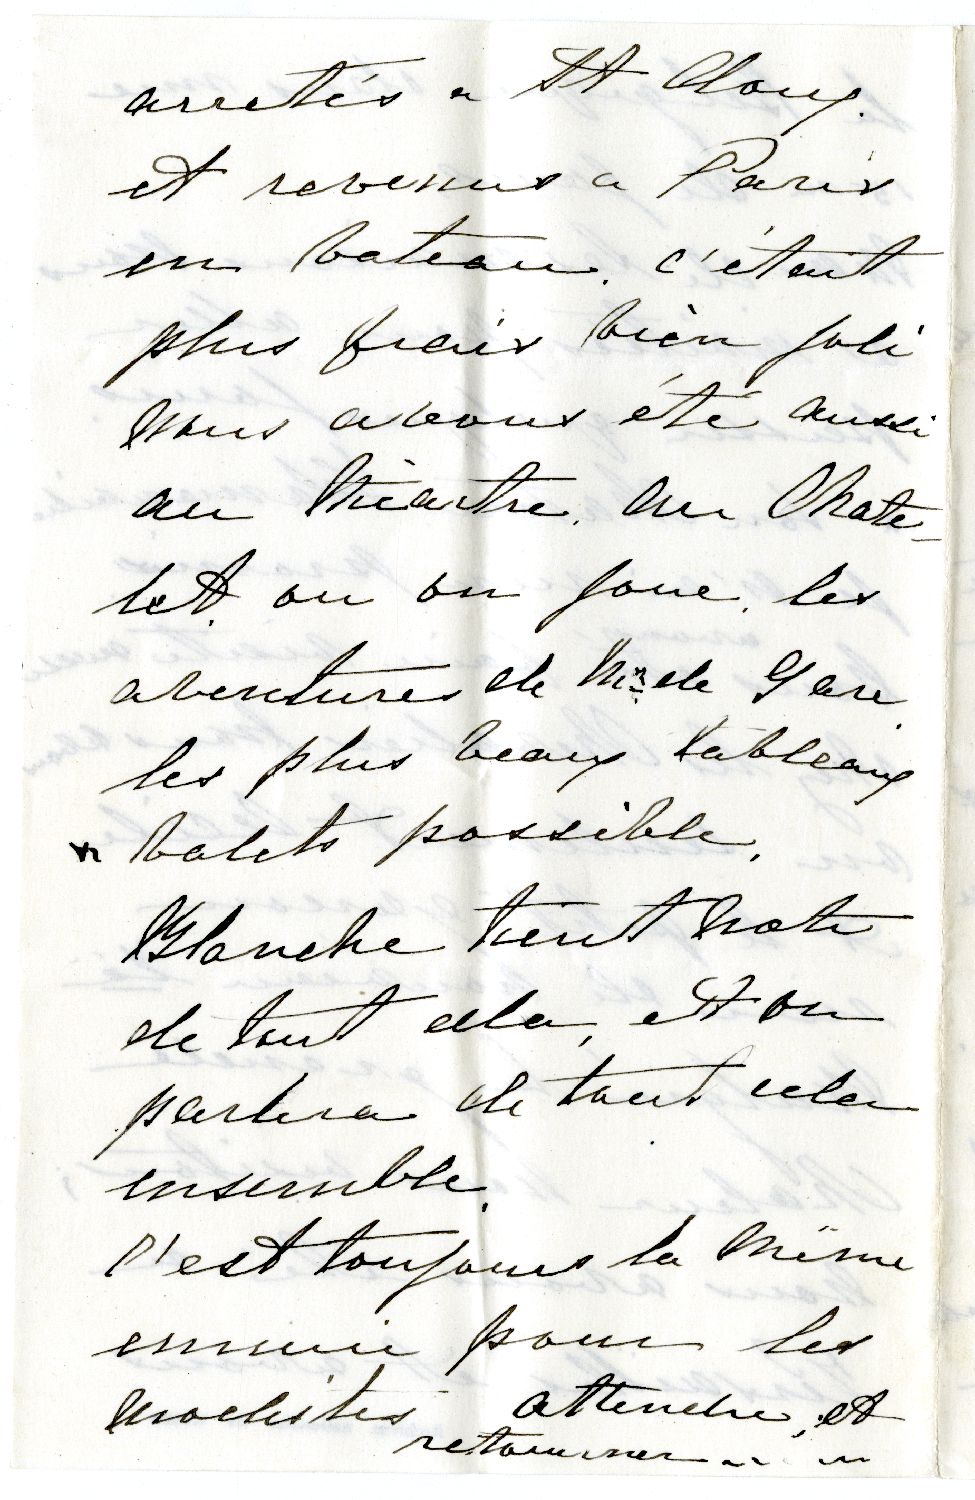 arretés a St Cloux.
et revenus a Paris
en bateau. c'était
plus frais bien joli
nous avons été aussi
au théartre. au Chate-
let. ou on joue. les
aventures de Mr de Gare.
les plus beaux tableaux
balets possible.
Blanche tient note
de tout cela, et on
parlera de tout cela
ensemble.
C'est toujours la même
ennuie pour les
modistes attendre, et
retourner